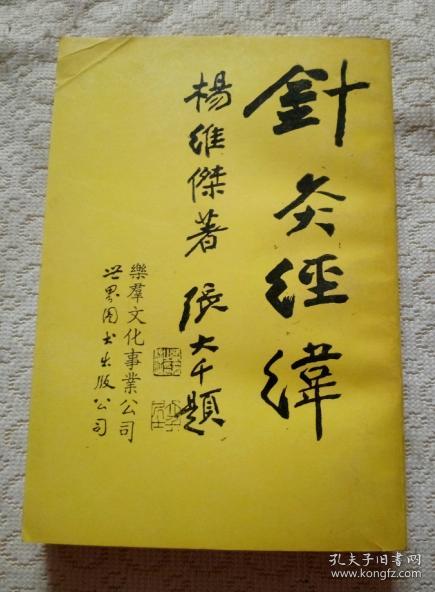 針灸經緯
楊維傑著 張大千題
樂羣文化事業公司
世界图书出版公司
孔夫子旧书网
www.kongfz.com